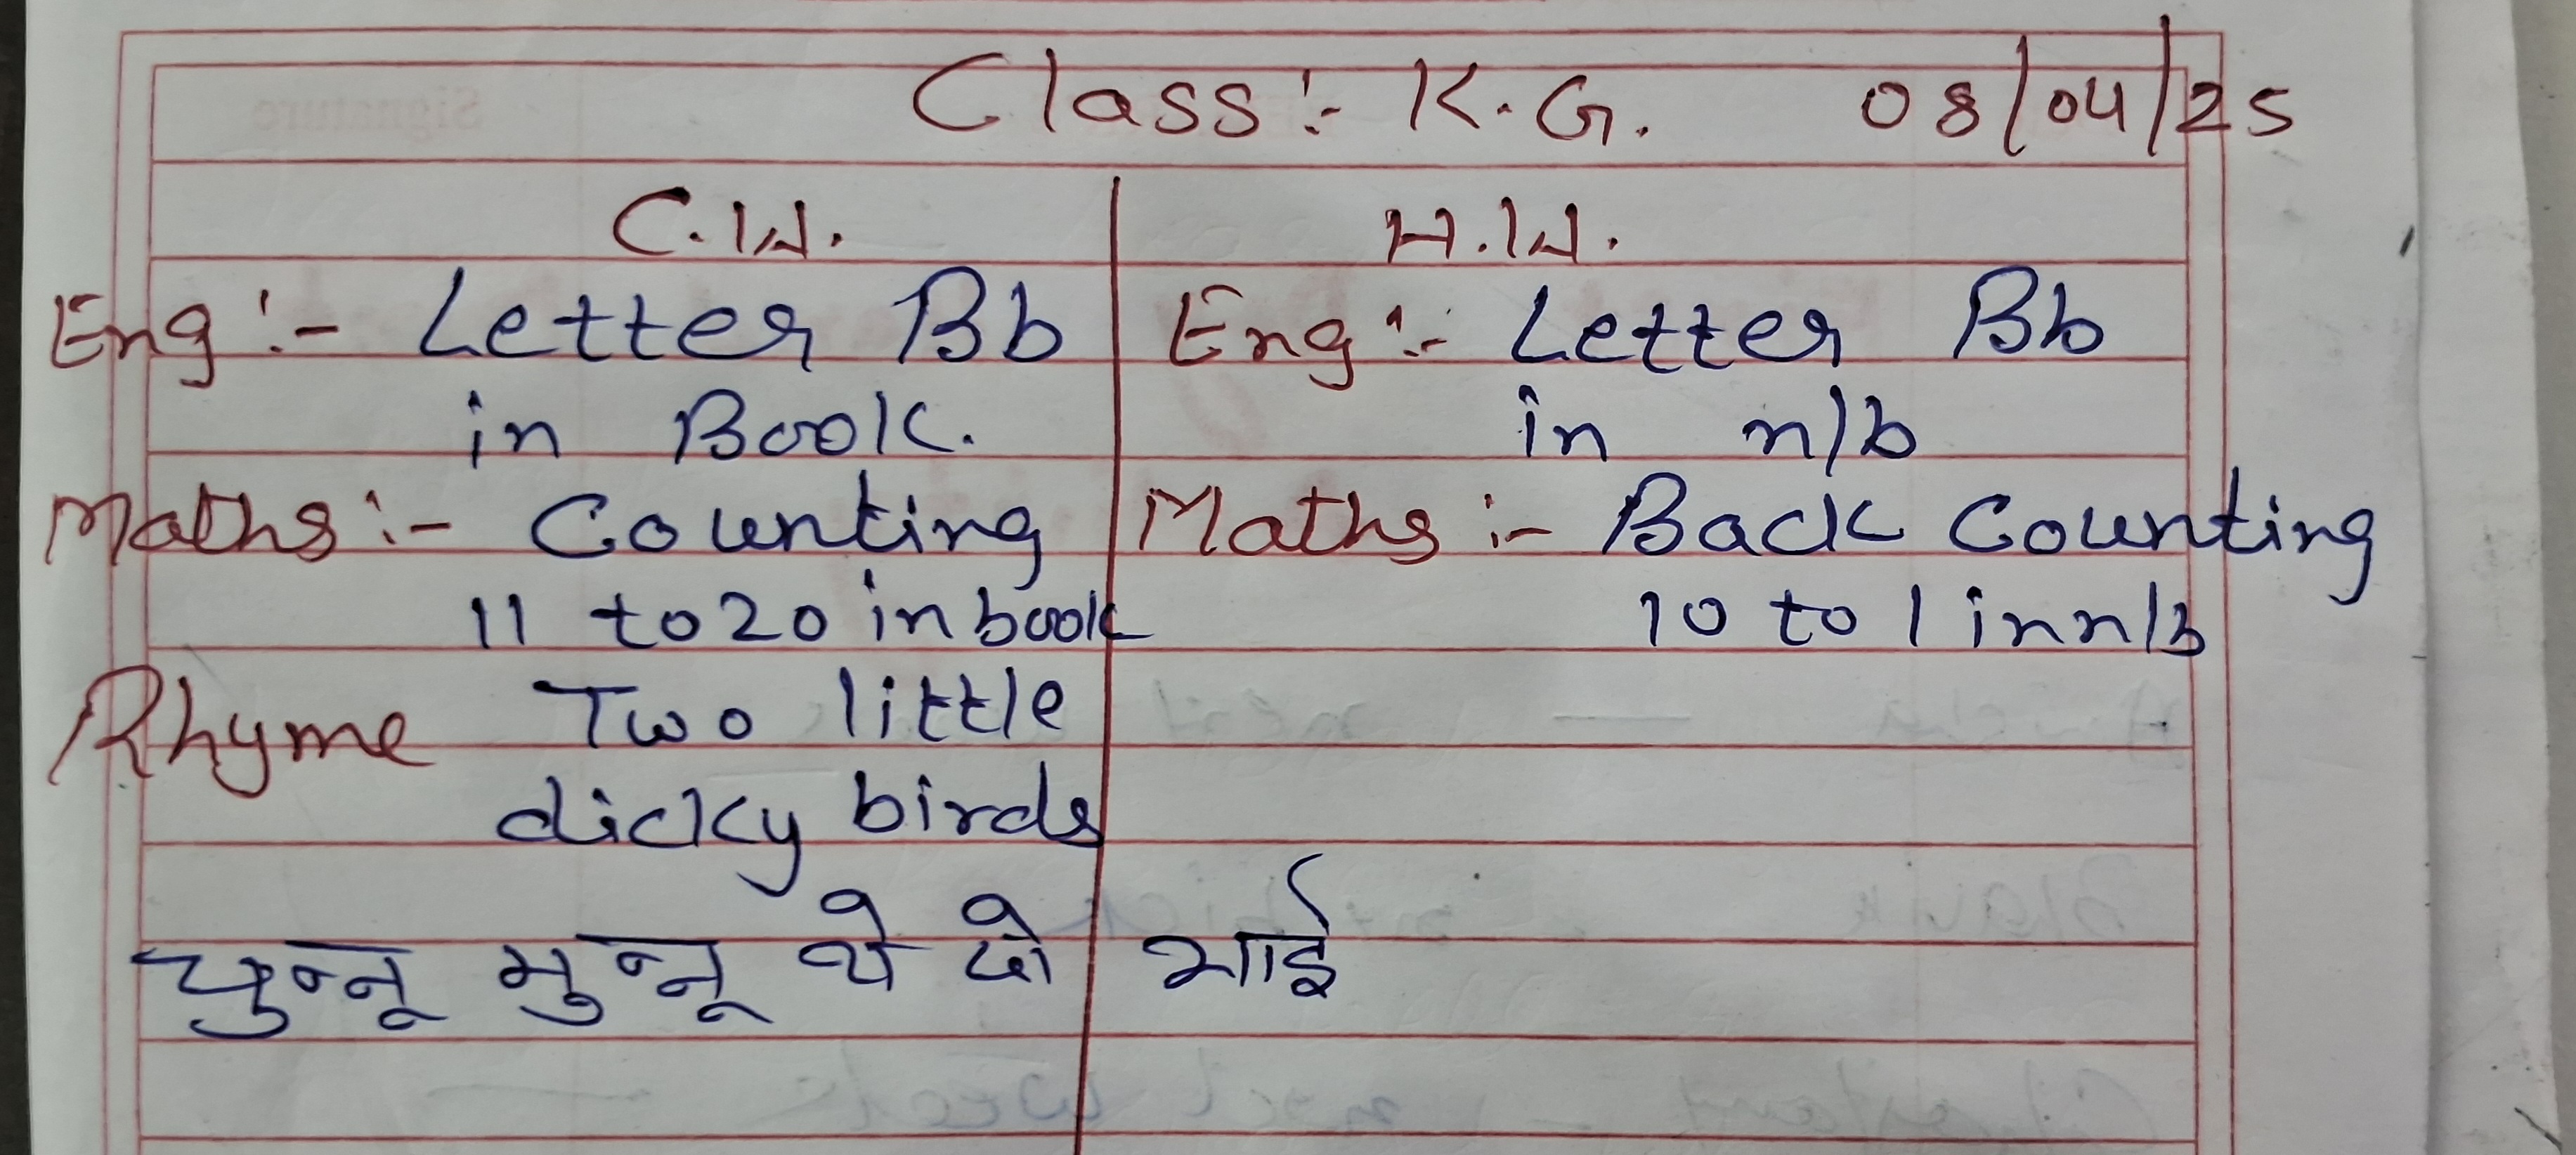 Class:- K.G. 08/04/25
C.W. H.W.
Eng:- Letter Bb Eng:- Letter Bb
in Book. in n/b
Maths:- Counting Maths:- Back Counting
11 to 20 in book 10 to 1 in n/b
Rhyme Two little
dicky birds
चुन्नू मुन्नू थे दो भाई